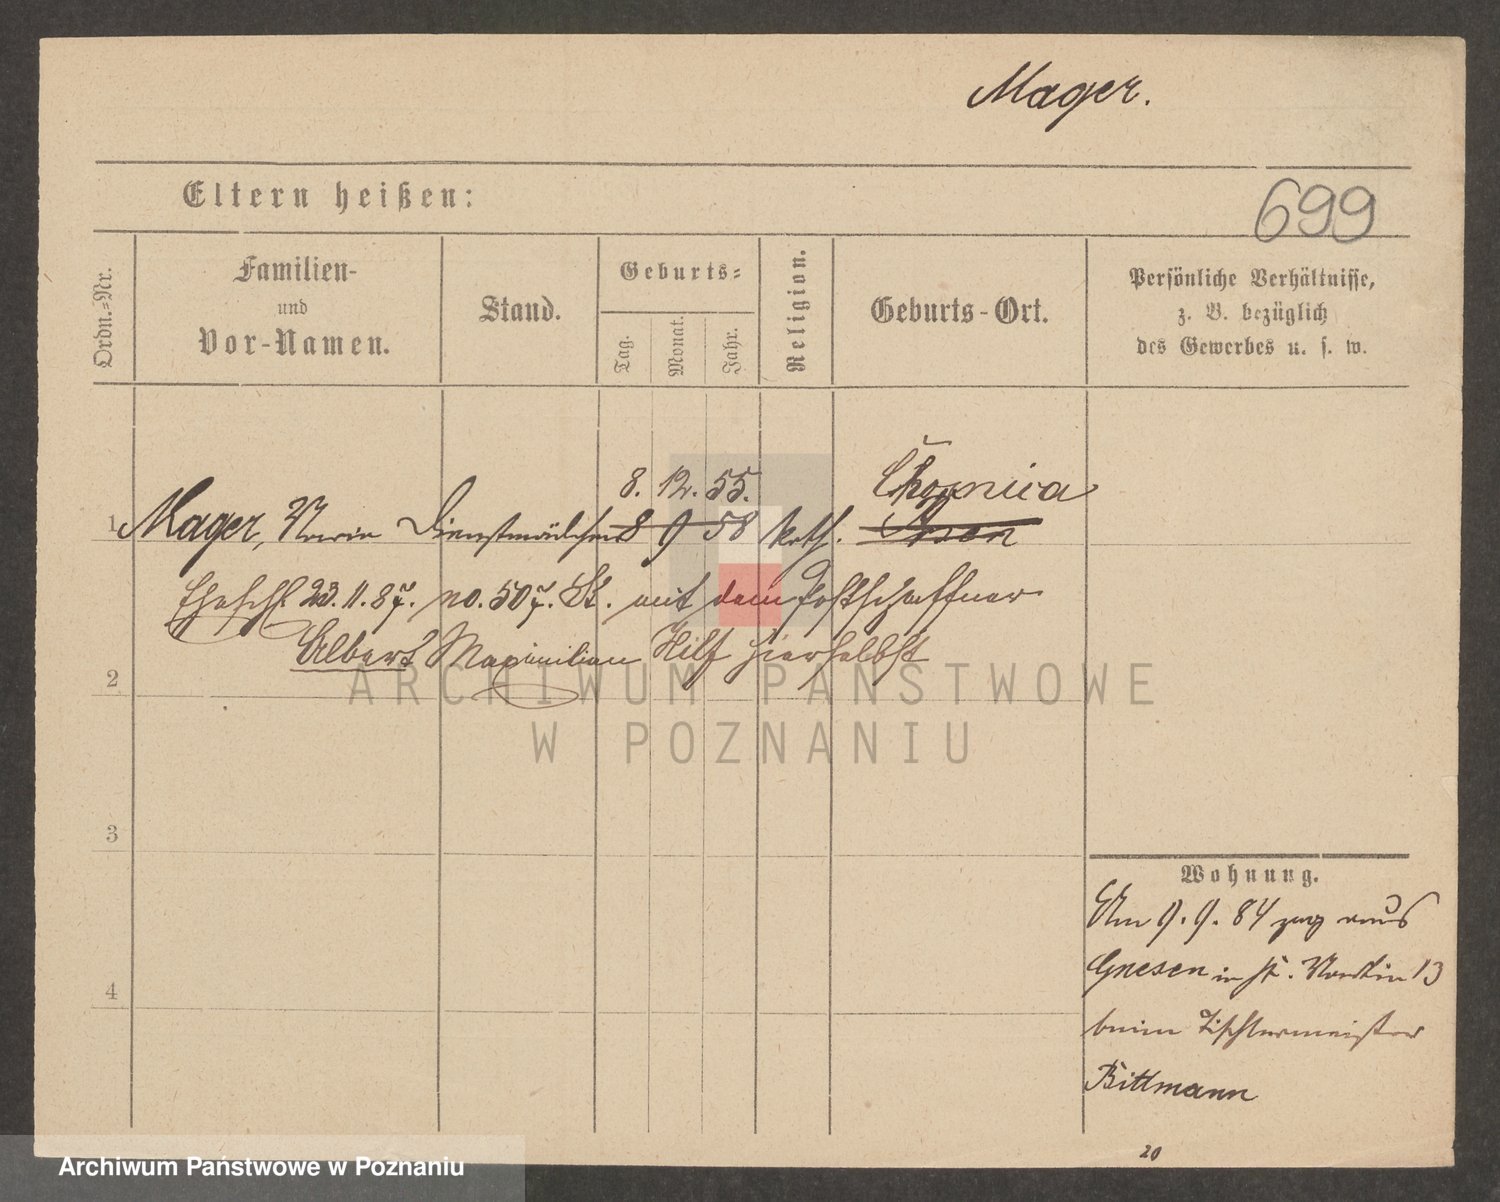 Mager.
Eltern heißen:
699
Ordn.-Nr.
Familien-
und
Vor-Namen.
Stand.
Geburts-
Tag.
Monat.
Jahr.
Religion.
Geburts-Ort.
Persönliche Verhältnisse,
z. B. bezüglich
des Gewerbes u. s. w.
8. 12. 55.
1 Mager, Marie Dienstmädchen 8 9 58 kath.
Eheschl. 23. 11. 87. no. 507. St. mit dem Postschaffner
Albert Maximilian Hilf hierselbst
2
3
4
Wohnung.
Am 9. 9. 84 zug aus
Gnesen in St. Martin 13
beim Tischlermeister
Bittmann
20
ARCHIWUM PAŃSTWOWE
W POZNANIU
Archiwum Państwowe w Poznaniu